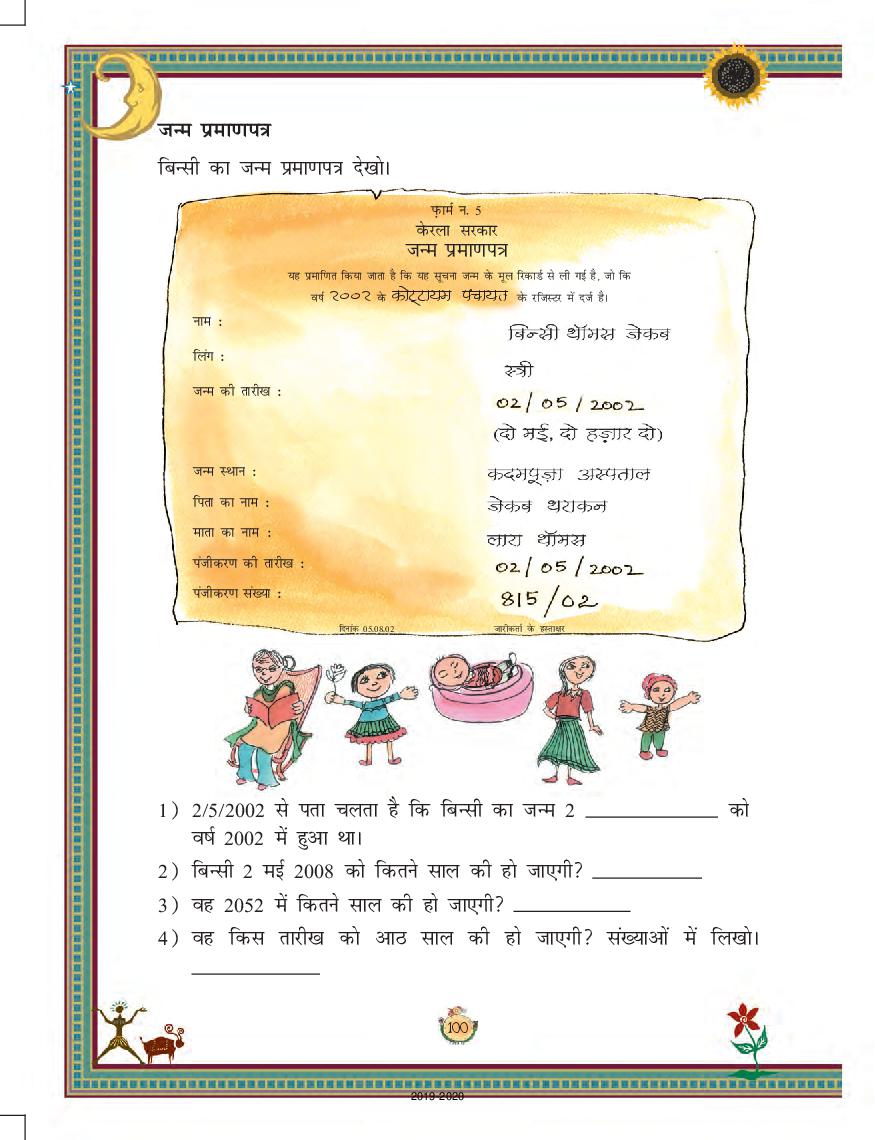 जन्म प्रमाणपत्र
बिन्सी का जन्म प्रमाणपत्र देखो।
फ़ार्म न. 5
केरला सरकार
जन्म प्रमाणपत्र
यह प्रमाणित किया जाता है कि यह सूचना जन्म के मूल रिकार्ड से ली गई है, जो कि
वर्ष २००२ के कोट्टायम पंचायत के रजिस्टर में दर्ज है।
नाम : बिन्सी थॉमस जेकब
लिंग : स्त्री
जन्म की तारीख : 02/05/2002
(दो मई, दो हज़ार दो)
जन्म स्थान : कदमपूज़ा अस्पताल
पिता का नाम : जेकब थराकन
माता का नाम : लारा थॉमस
पंजीकरण की तारीख : 02/05/2002
पंजीकरण संख्या : 815/02
दिनांक 05.08.02 जारीकर्ता के हस्ताक्षर
1) 2/5/2002 से पता चलता है कि बिन्सी का जन्म 2 ____________ को
वर्ष 2002 में हुआ था।
2) बिन्सी 2 मई 2008 को कितने साल की हो जाएगी? __________
3) वह 2052 में कितने साल की हो जाएगी? ___________
4) वह किस तारीख को आठ साल की हो जाएगी? संख्याओं में लिखो।
____________
100
2019-2020